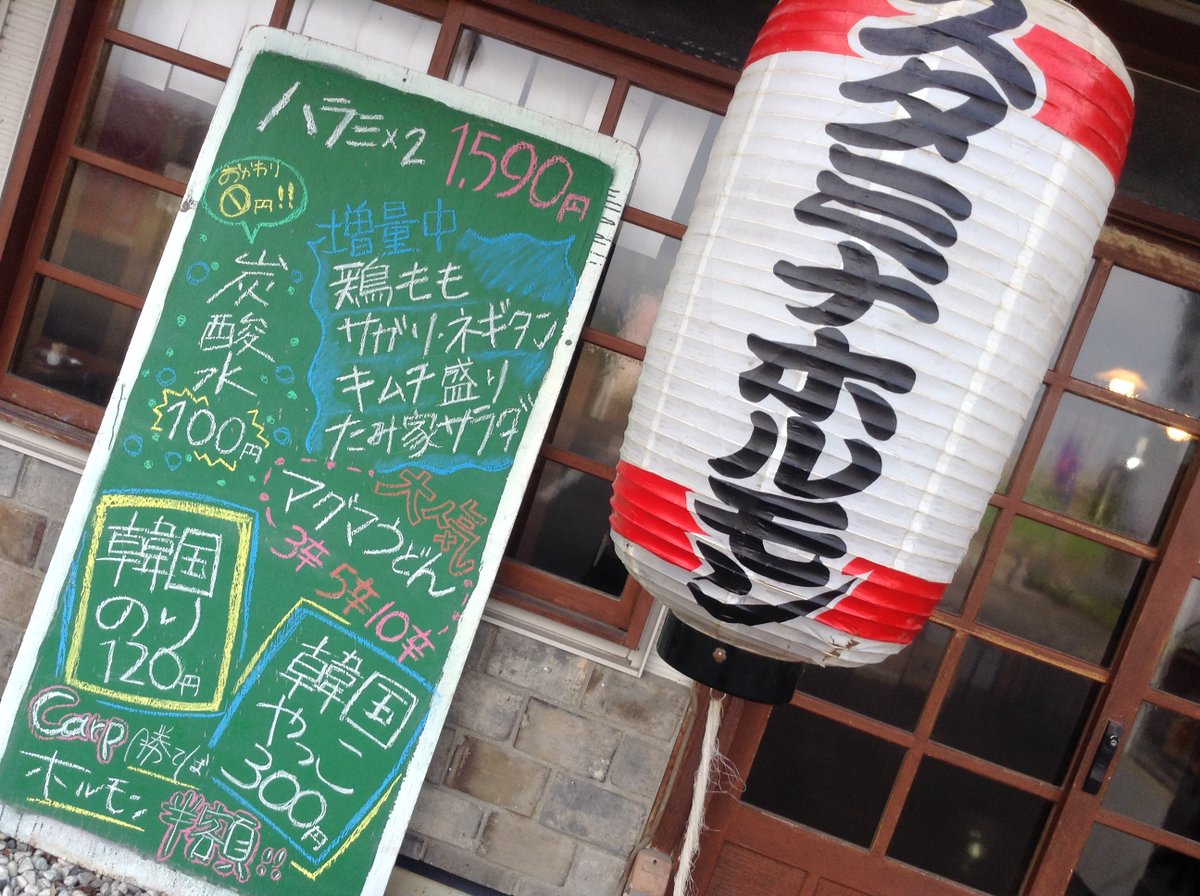 ハラミ×2 1,590円
おかわり
0円!!
炭酸水
100円
増量中
鶏もも
サガリ・ネギタン
キムチ盛り
たみ家サラダ
大人気
マグマうどん
3辛 5辛 10辛
韓国
のり
120円
韓国
やっこ
300円
Carp 勝てば
ホルモン 半額!!
スタミナホルモン